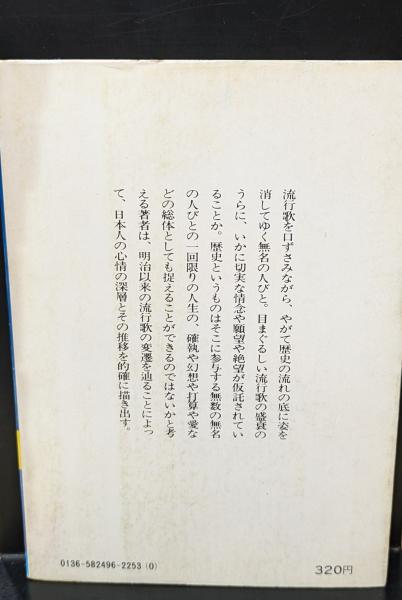 流行歌を口ずさみながら、やがて歴史の流れの底に姿を
消してゆく無名の人びと。目まぐるしい流行歌の盛衰の
うらに、いかに切実な情念や願望や絶望が仮託されてい
ることか。歴史というものはそこに参与する無数の無名
の人びとの一回限りの人生の、確執や幻想や打算や愛な
どの総体としても捉えることができるのではないかと考
える著者は、明治以来の流行歌の変遷を辿ることによっ
て、日本人の心情の深層とその推移を的確に描き出す。
0136-582496-2253 (0)
320円